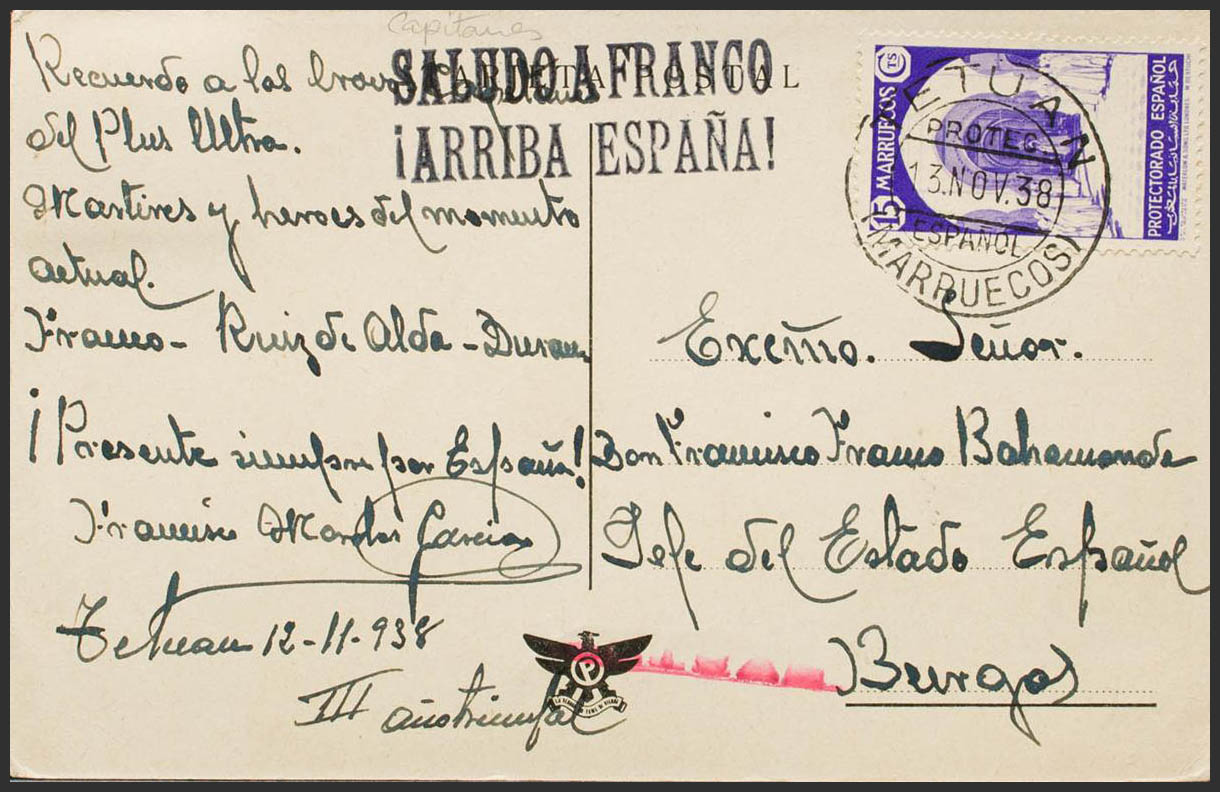 Capitanes
SALUDO A FRANCO
TARJETA POSTAL
¡ARRIBA ESPAÑA!
Recuerdo a los bravos Capitanes
del Plus Ultra.
Martires y heroes del momento
actual.
Franco - Ruiz de Alda - Duran
¡Presente siempre por España!
Francisco García
Tetuan 12-11-938
III año triunfal
P
15 MARRUECOS
TS
PROTECTORADO ESPAÑOL
TETUAN
PROTEC.
13.NOV.38
ESPAÑOL
(MARRUECOS)
Excmo. Señor.
Don Francisco Franco Bahamonde
Jefe del Estado Español
Burgos